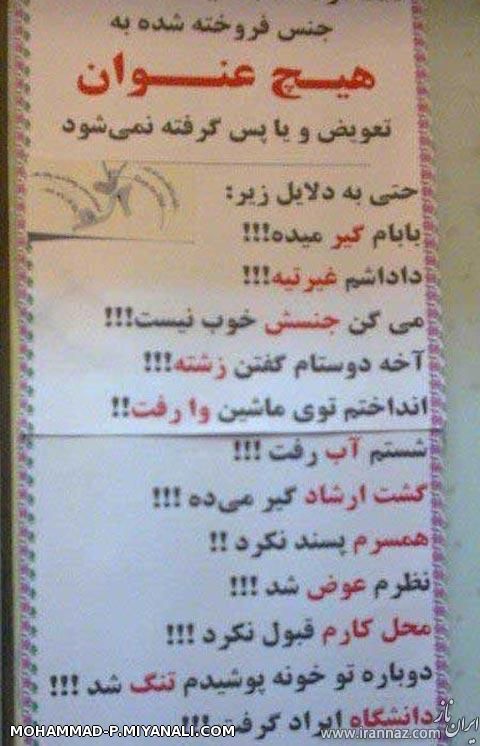 جنس فروخته شده به
هیچ عنوان
تعویض و یا پس گرفته نمی‌شود
حتی به دلایل زیر:
بابام گیر میده!!!
داداشم غیرتیه!!!
می گن جنسش خوب نیست!!!
آخه دوستام گفتن زشته!!!
انداختم توی ماشین وا رفت!!
شستم آب رفت !!!
گشت ارشاد گیر می‌ده !!!
همسرم پسند نکرد !!
نظرم عوض شد !!!
محل کارم قبول نکرد !!!
دوباره تو خونه پوشیدم تنگ شد !!!
دانشگاه ایراد گرفت !!!
MOHAMMAD-P.MIYANALI.COM
www.irannaz.com
ایران ناز